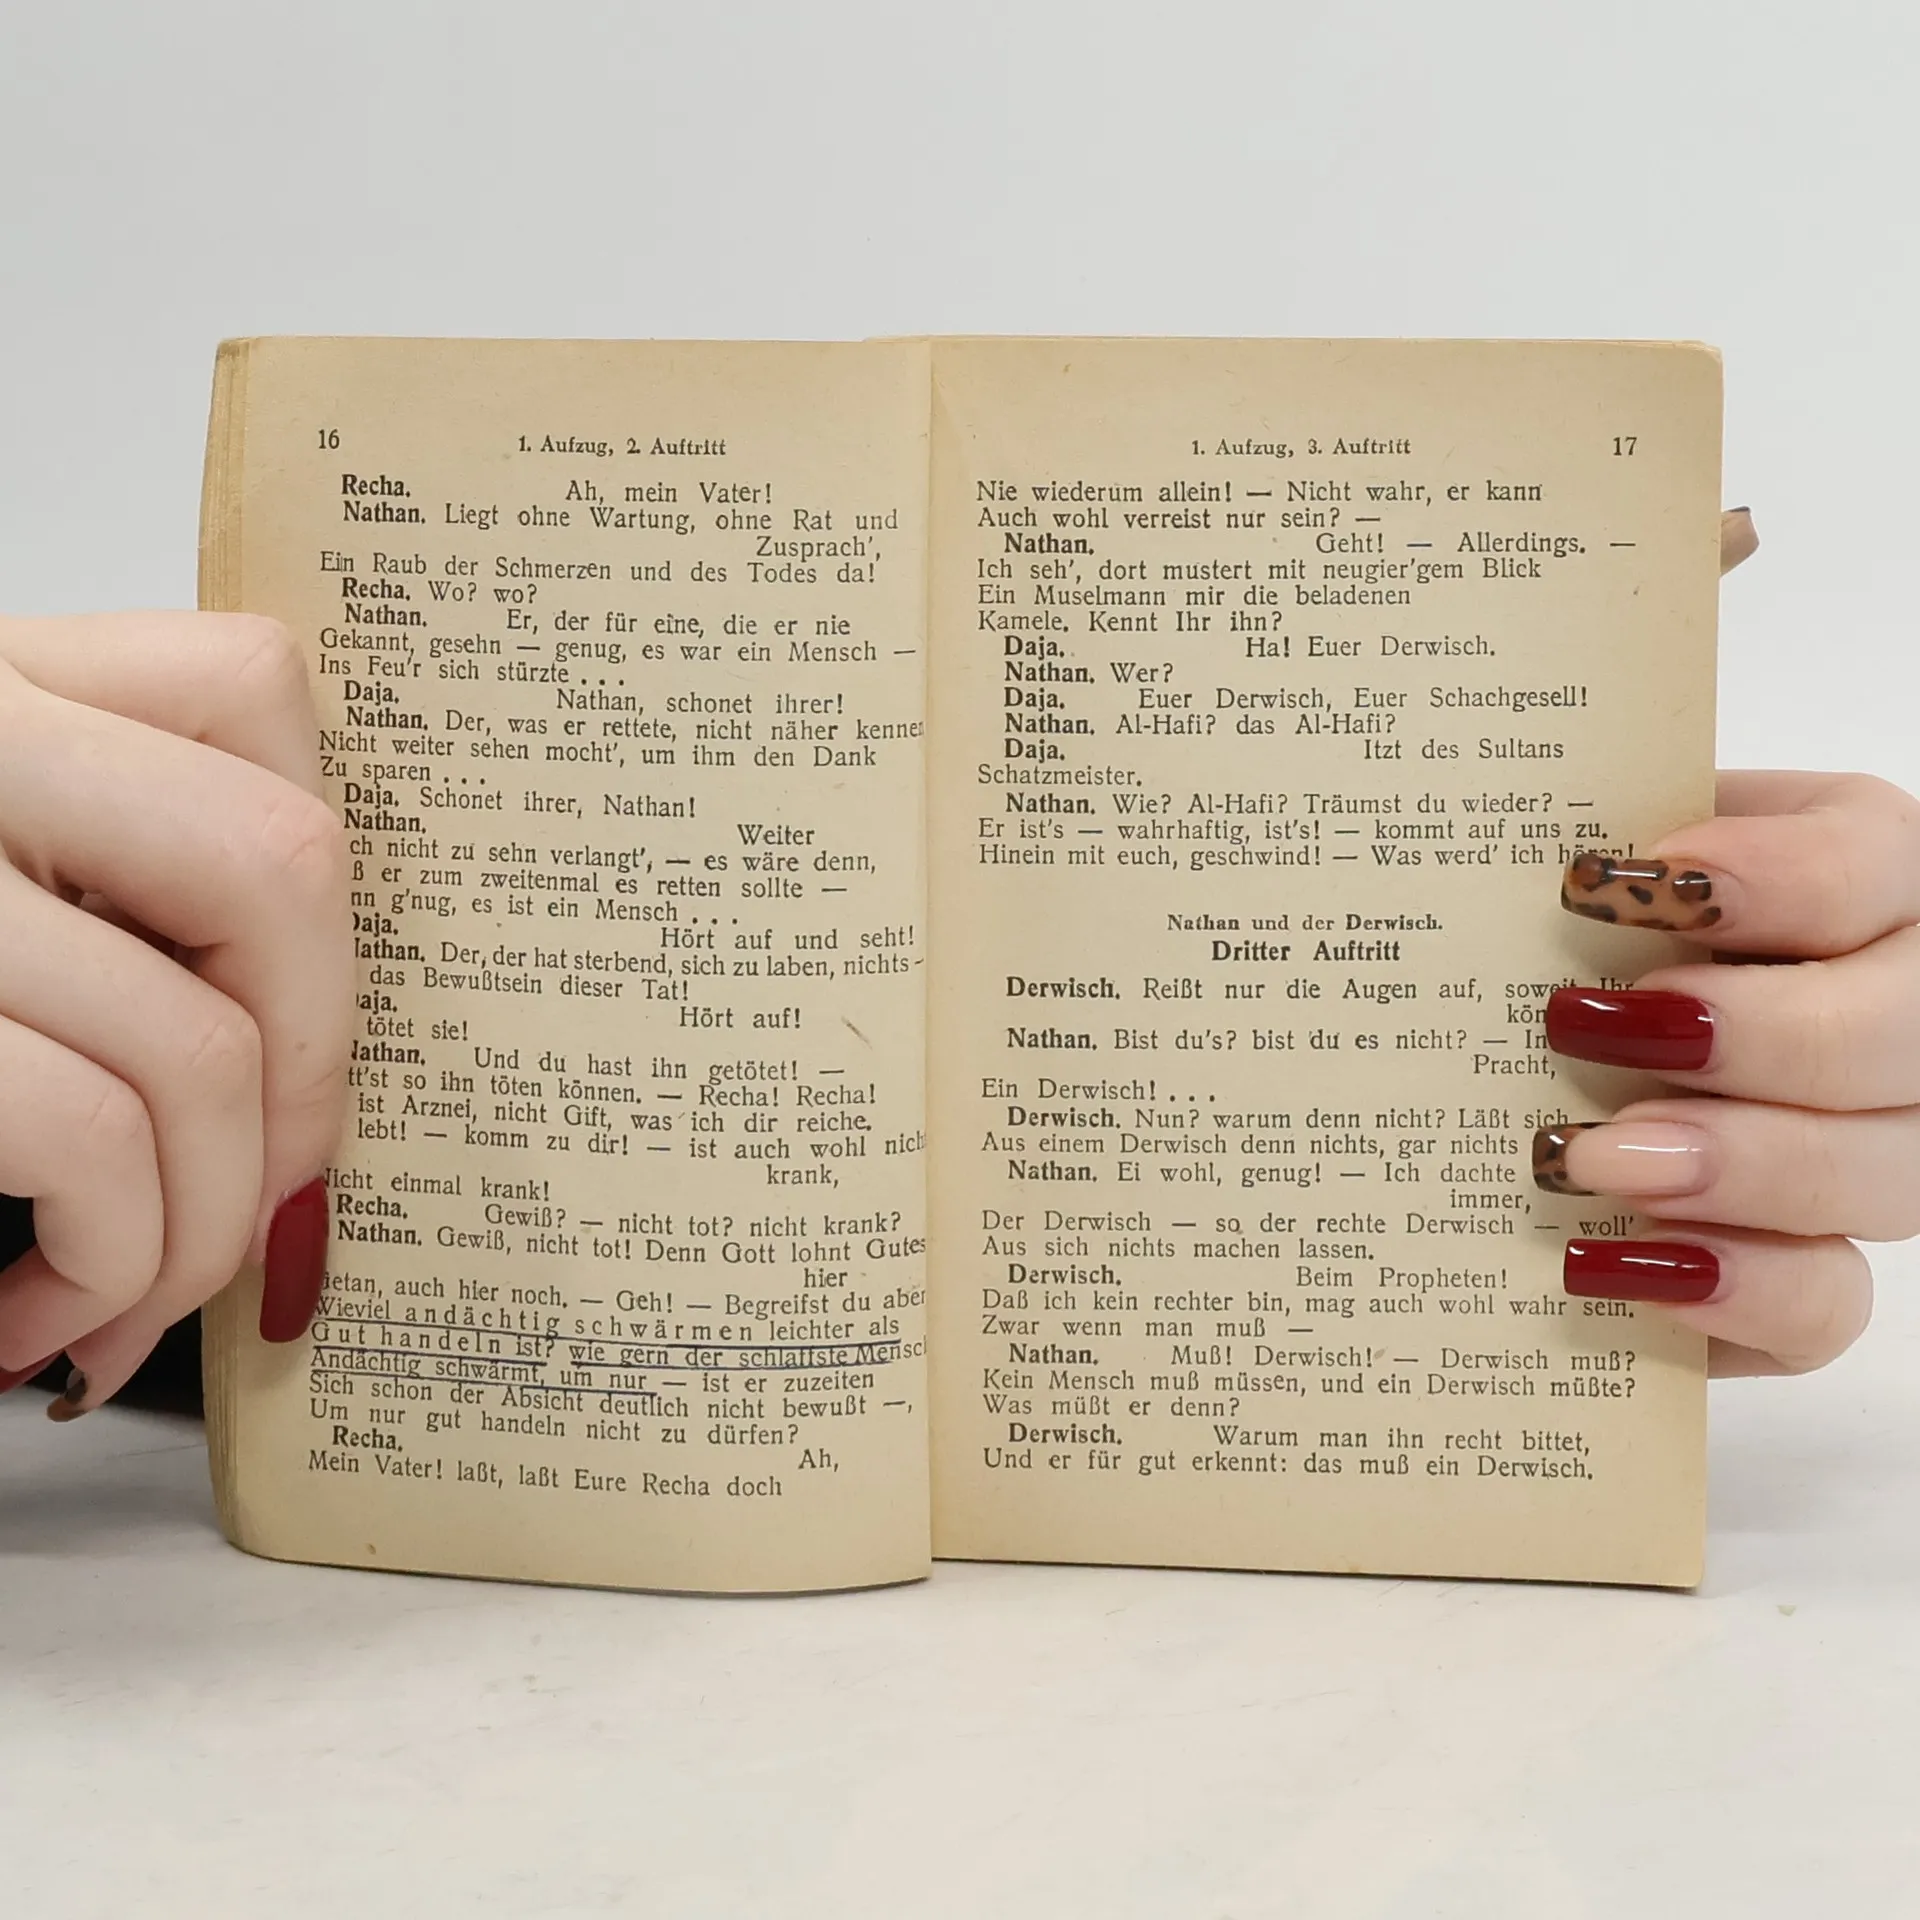 16
1. Aufzug, 2. Auftritt
Recha. Ah, mein Vater!
Nathan. Liegt ohne Wartung, ohne Rat und
Zusprach',
Ein Raub der Schmerzen und des Todes da!
Recha. Wo? wo?
Nathan. Er, der für eine, die er nie
Gekannt, gesehn — genug, es war ein Mensch —
Ins Feu'r sich stürzte . . .
Daja. Nathan, schonet ihrer!
Nathan. Der, was er rettete, nicht näher kennen
Nicht weiter sehen mocht', um ihm den Dank
Zu sparen . . .
Daja. Schonet ihrer, Nathan!
Nathan. Weiter
ch nicht zu sehn verlangt', — es wäre denn,
ß er zum zweitenmal es retten sollte —
nn g'nug, es ist ein Mensch . . .
Daja. Hört auf und seht!
Nathan. Der, der hat sterbend, sich zu laben, nichts-
das Bewußtsein dieser Tat!
Daja. Hört auf!
tötet sie!
Nathan. Und du hast ihn getötet! —
tt'st so ihn töten können. — Recha! Recha!
ist Arznei, nicht Gift, was ich dir reiche.
lebt! — komm zu dir! — ist auch wohl nicht
krank,
Nicht einmal krank!
Recha. Gewiß? — nicht tot? nicht krank?
Nathan. Gewiß, nicht tot! Denn Gott lohnt Gutes
hier
Getan, auch hier noch. — Geh! — Begreifst du aber
Wieviel andächtig schwärmen leichter als
Gut handeln ist? wie gern der schlaffste Mensch
Andächtig schwärmt, um nur — ist er zuzeiten
Sich schon der Absicht deutlich nicht bewußt —,
Um nur gut handeln nicht zu dürfen?
Recha. Ah,
Mein Vater! laßt, laßt Eure Recha doch
1. Aufzug, 3. Auftritt
17
Nie wiederum allein! — Nicht wahr, er kann
Auch wohl verreist nur sein? —
Nathan. Geht! — Allerdings. —
Ich seh', dort mustert mit neugier'gem Blick
Ein Muselmann mir die beladenen
Kamele. Kennt Ihr ihn?
Daja. Ha! Euer Derwisch.
Nathan. Wer?
Daja. Euer Derwisch, Euer Schachgesell!
Nathan. Al-Hafi? das Al-Hafi?
Daja. Itzt des Sultans
Schatzmeister.
Nathan. Wie? Al-Hafi? Träumst du wieder? —
Er ist's — wahrhaftig, ist's! — kommt auf uns zu.
Hinein mit euch, geschwind! — Was werd' ich hören!
Nathan und der Derwisch.
Dritter Auftritt
Derwisch. Reißt nur die Augen auf, soweit Ihr
kön
Nathan. Bist du's? bist du es nicht? — In
Pracht,
Ein Derwisch! . . .
Derwisch. Nun? warum denn nicht? Läßt sich
Aus einem Derwisch denn nichts, gar nichts
Nathan. Ei wohl, genug! — Ich dachte
immer,
Der Derwisch — so der rechte Derwisch — woll'
Aus sich nichts machen lassen.
Derwisch. Beim Propheten!
Daß ich kein rechter bin, mag auch wohl wahr sein.
Zwar wenn man muß —
Nathan. Muß! Derwisch! — Derwisch muß?
Kein Mensch muß müssen, und ein Derwisch müßte?
Was müßt er denn?
Derwisch. Warum man ihn recht bittet,
Und er für gut erkennt: das muß ein Derwisch.